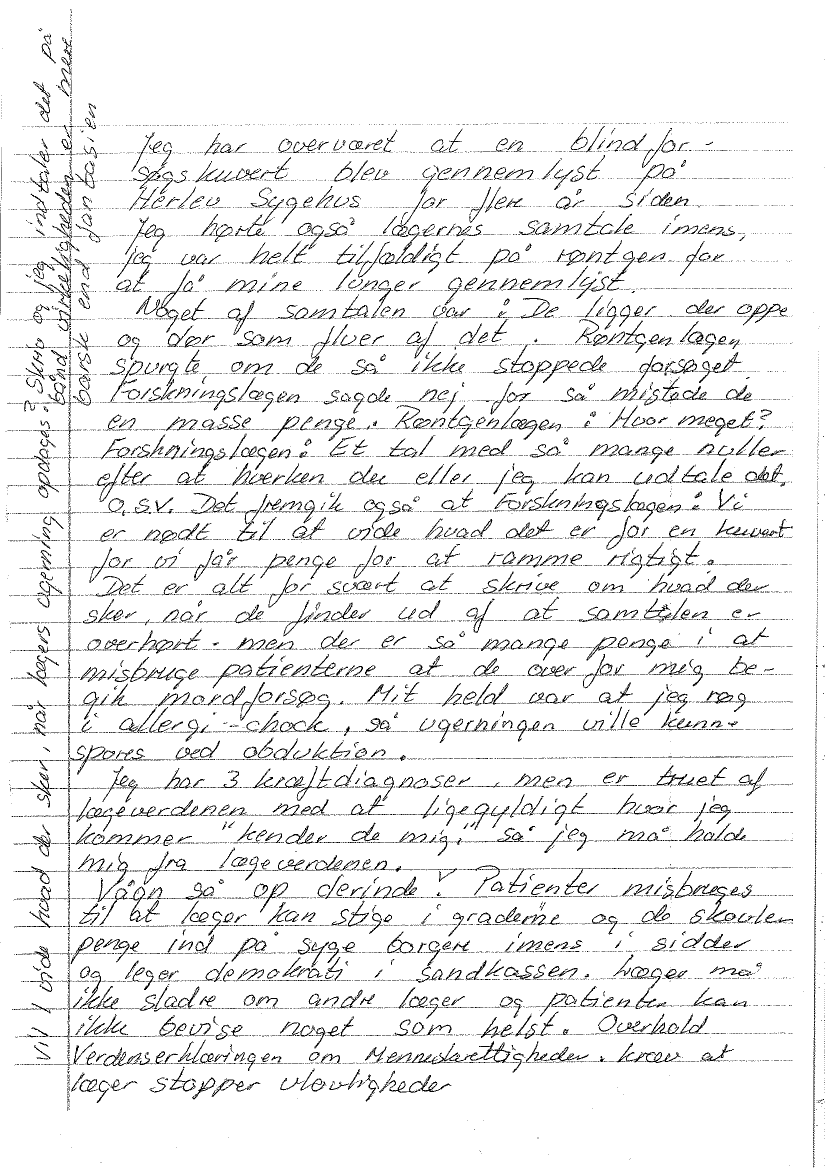 Jeg har overværet at en blindfor-
søgskuvert blev gennemlyst på
Herlev Sygehus for flere år siden.
Jeg hørte også lægernes samtale imens,
jeg var helt tilfældigt på røntgen for
at få mine lunger gennemlyst.
Noget af samtalen var: De ligger der oppe
og dør som fluer af det. Røntgenlægen
spurgte om de så ikke stoppede forsøget.
Forskningslægen sagde nej for så mistede de
en masse penge. Røntgenlægen: Hvor meget?
Forskningslægen: Et tal med så mange nuller
efter at hverken du eller jeg kan udtale det.
O.S.V. Det fremgik også at Forskningslægen: Vi
er nødt til at vide hvad det er for en kuvert
for vi får penge for at ramme rigtigt.
Det er alt for svært at skrive om hvad der
sker, når de finder ud af at samtalen er
overhørt - men der er så mange penge i at
misbruge patienterne at de over for mig be-
gik mordforsøg. Mit held var at jeg røg
i allergi-chock, så ugerningen ville kunne
spores ved obduktion.
Jeg har 3 kræftdiagnoser, men er truet af
lægeverdenen med at ligegyldigt hvor jeg
kommer "kender de mig," så jeg må holde
mig fra lægeverdenen.
Vågn så op derinde! Patienter misbruges
til at læger kan stige i graderne og de skovler
penge ind på syge borgere imens i sidder
og leger demokrati i sandkassen. Læger må
ikke sladre om andre læger og patienter kan
ikke bevise noget som helst. Overhold
Verdenserklæringen om Menneskerettigheder. kræv at
læger stopper ulovligheder
Vil I vide hvad der sker, når lægers ugerning opdages? Skriv og jeg indtaler det på
bånd virkeligheden er mere
barsk end fantasien